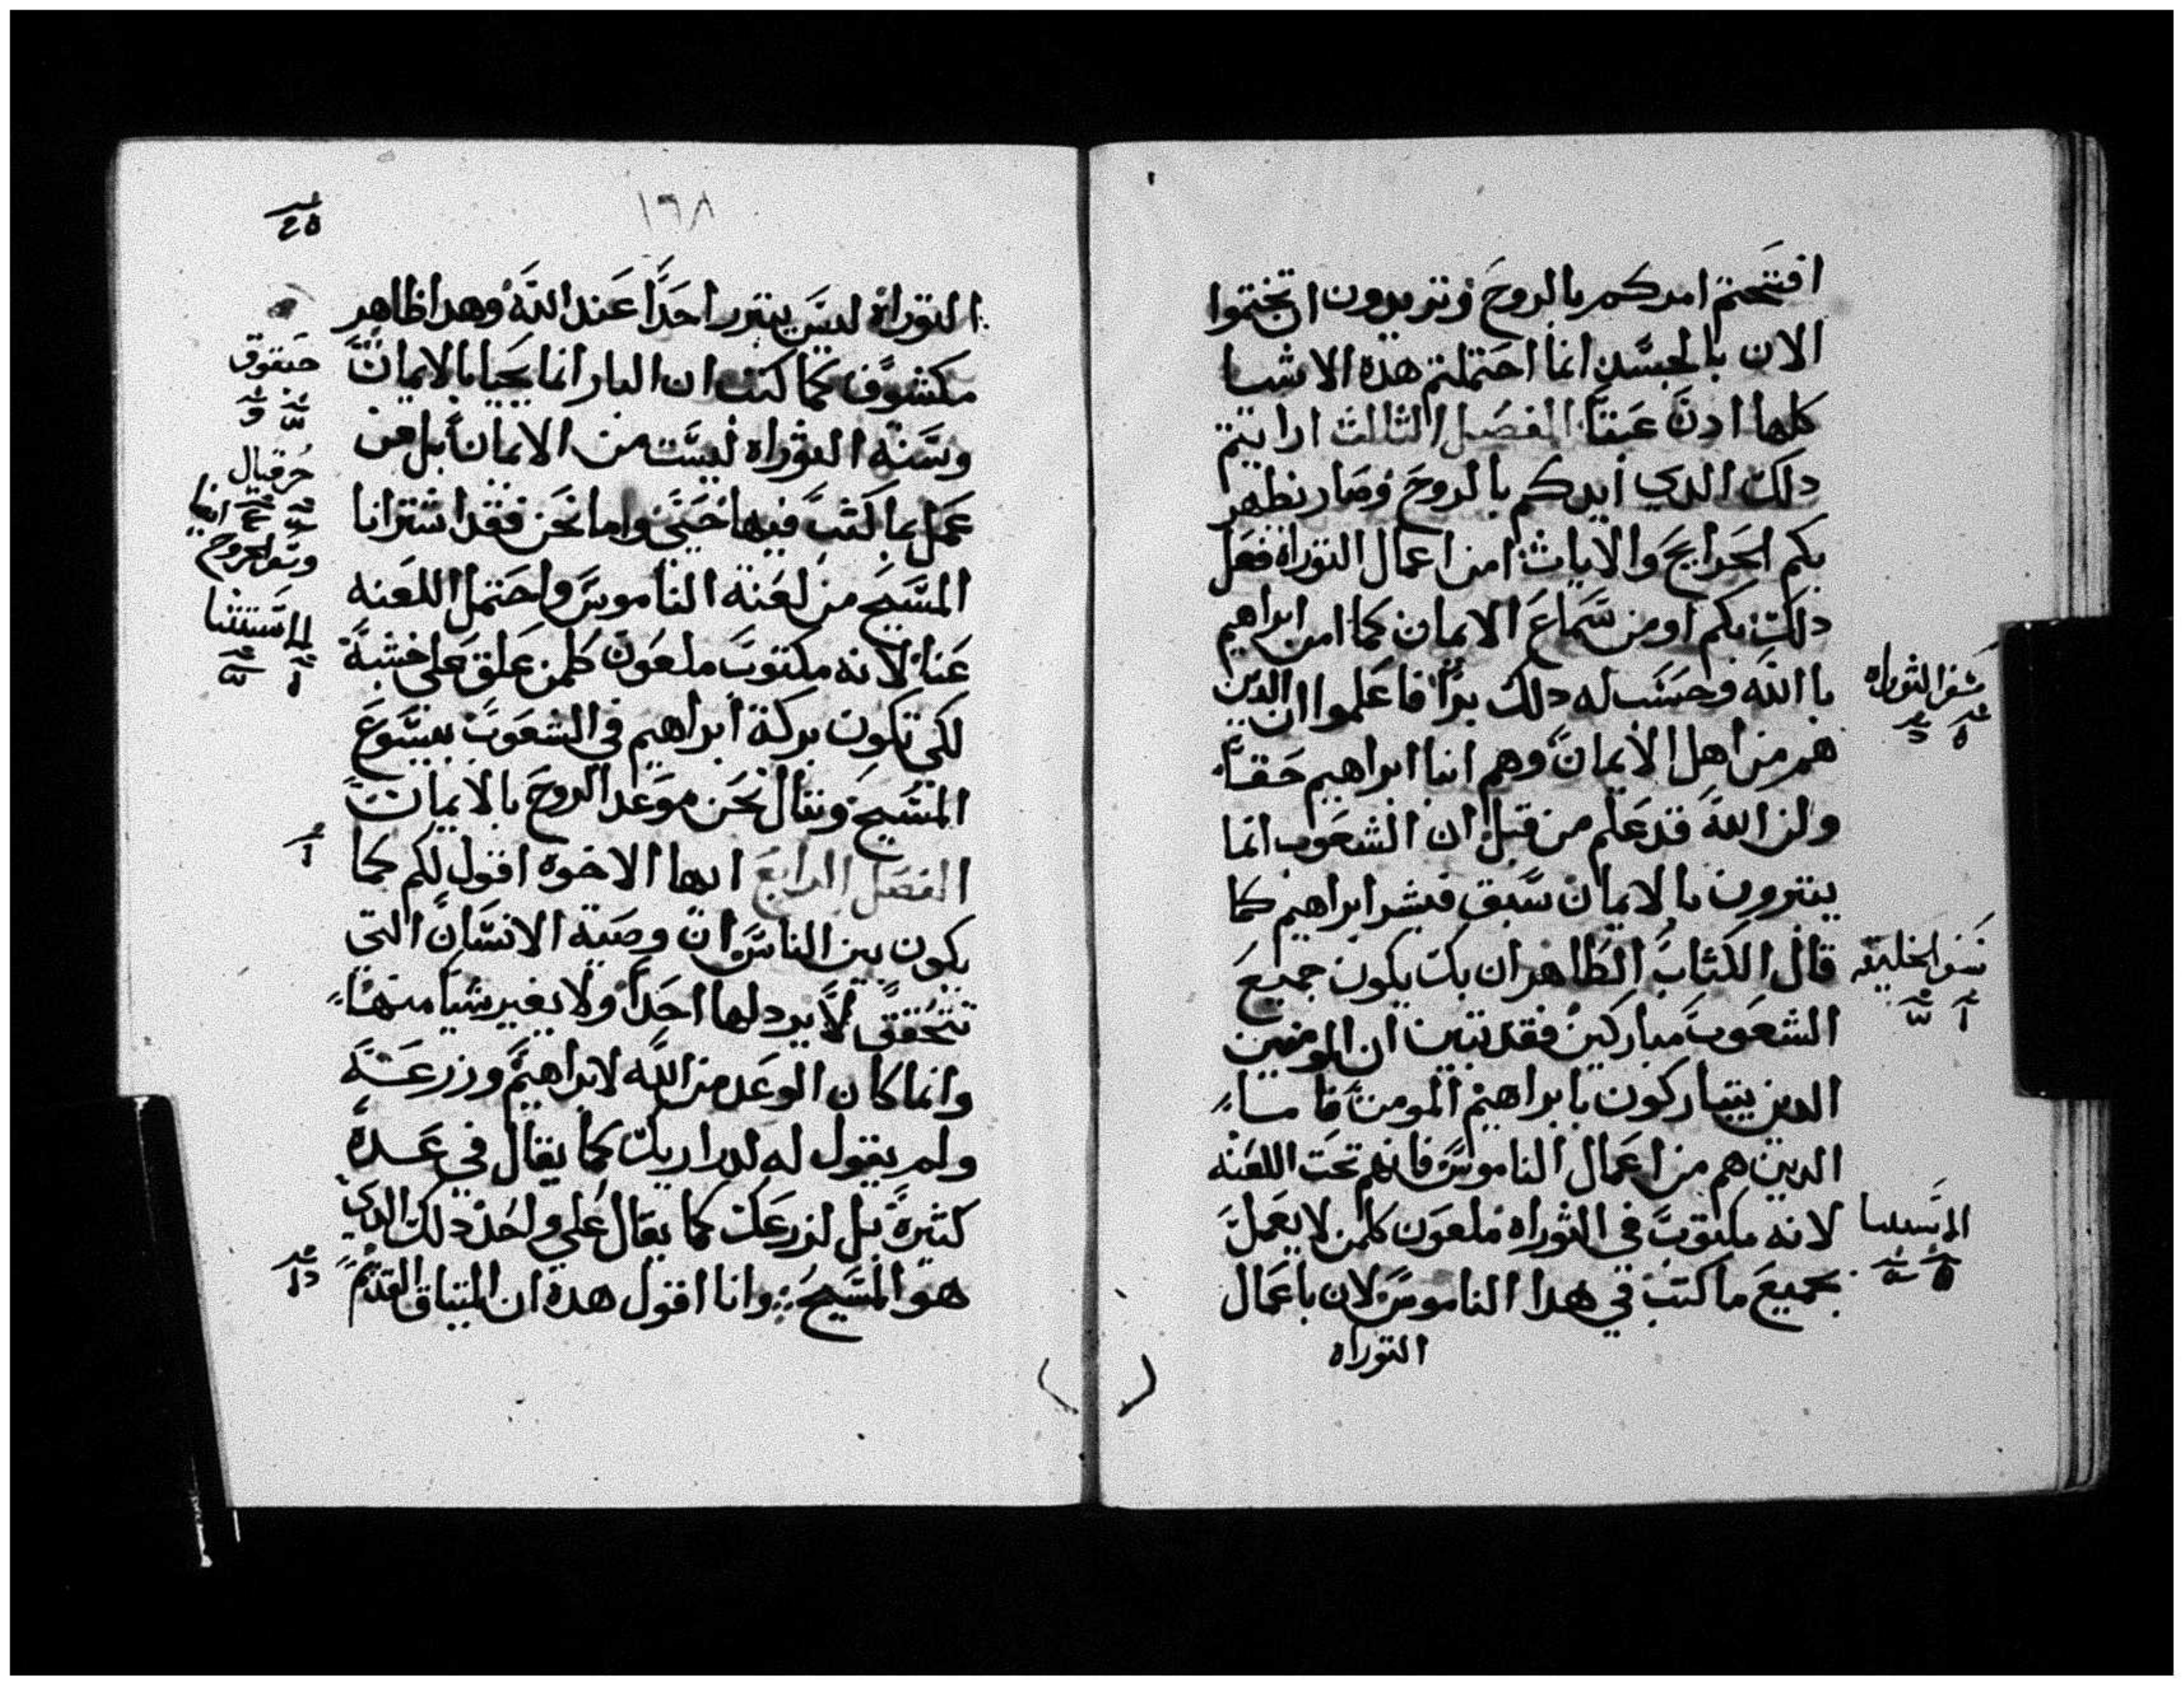 افتتحتم امركم بالروح وتريدون ان تختموا
الان بالجسد انما احتملتم هذه الاشيا
كلها ادن عبتا الفصل الثالث ارايتم
دلك الدي ايدكم بالروح وصار نظهر
بكم الجرايح والايات امن اعمال التوراه فعل
دلك بكم او من سماع الايمان كما امن ابراهيم
باالله وحسب له دلك برا فاعلموا ان الدين
هم من اهل الايمان وهم ابنا ابراهيم حقا
ولن الله قد علم من قبل ان الشعوب انما
يتبررون بالايمان سبق فبشر ابراهيم كما
قال الكتاب الظاهر ان بك يكون جميع
الشعوب مباركين فقد تبين ان المومنين
الدين يتباركون بابراهيم المومن فاما
الدين هم من اعمال الناموس فانهم تحت اللعنه
لانه مكتوب في التوراه ملعون كلمن لا يعمل
بجميع ما كتب في هدا الناموس لان باعمال
التوراه
سفر التوراه
سفر الخليقه
١٦٨
التوراه ليس يتبرر احدا عند الله وهدا ظاهر
مكشوف كما كتب ان البار انما يحيا بالايمان
وسنة التوراه ليست من الايمان بل من
عمل بما كتب فيها حيي واما نحن فقد اشترانا
المسيح من لعنة الناموس واحتمل اللعنه
عنا لانه مكتوب ملعون كلمن علق علي خشبة
لكي تكون بركة ابراهيم في الشعوب بيسوع
المسيح وننال نحن موعد الروح بالايمان
الفصل الرابع ايها الاخوه اقول لكم كما
يكون بين الناس ان وصية الانسان التي
تتحقق لا يردلها احدا ولا يغير شيا منها
وانما كان الوعد من الله لابراهيم وزرعه
ولم يقول له لدراريك كما يقال في عدة
كثيرة بل لزرعك كما يقال علي واحد دلك الدي
هو المسيح وانا اقول هده ان الميتاق القديم
حبقوق
حزقيال